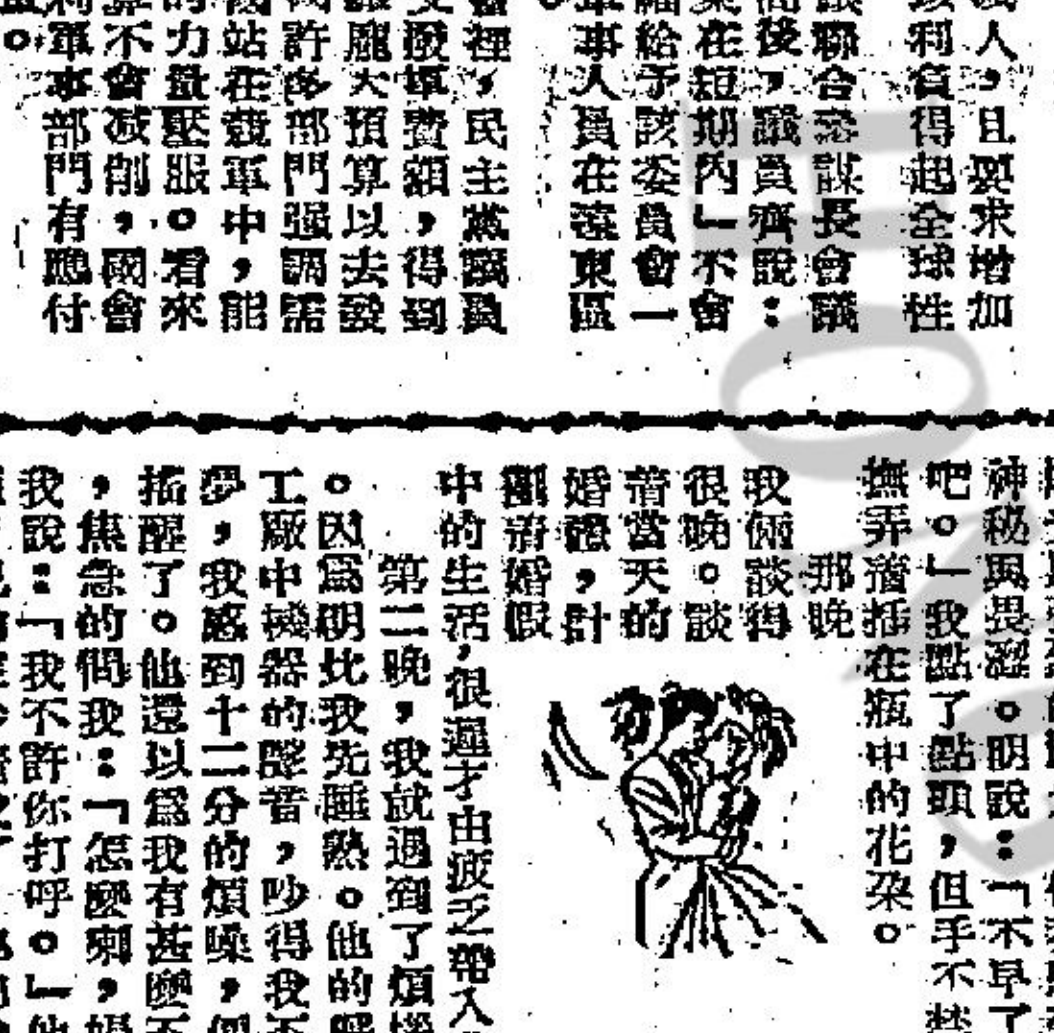 人，且要求增加
利負得起全球性
議聯合參謀長會議
後，議員齊說：
在短期內」不會
給予該委員會一
軍事人員在遠東區
裡，民主黨議員
撥軍費額，得到
龐大預算以去說
許多部門強調需
站在競軍中，能
的力量壓服。看來
算不會減削，國會
軍事部門有應付
神秘與畏澀。明說：「不早了
吧。」我點了點頭，但手不禁
撫弄着插在瓶中的花朶。
那晚
我倆談得
很晚。談
着當天的
婚禮，計
劃着婚假
中的生活，很遲才由疲乏帶入
第二晚，我就遇到了煩惱
。因為明比我先睡熟。他的
工廠中機器的聲音，吵得我不
夢，我感到十二分的煩噪，
搖醒了。他還以為我有甚麼不
，焦急的問我：「怎麼喇，
我說：「我不許你打呼。」他